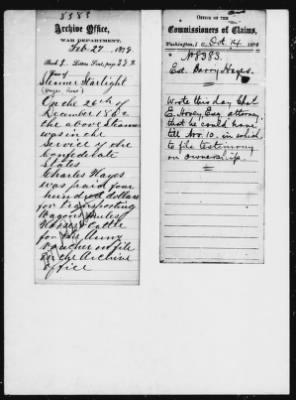 8383
Archive Office,
WAR DEPARTMENT,
Feb. 27 1879
Book 8. Letters Sent, page 232
Steamer Starlight
On the 26th of
December 1862
the above Steamer
was in the
Service of the
Confederate
States
Charles Hayes
was paid four
hundred dollars
for transporting
Wagons Mules
Horses & Cattle
for the Army
Voucher on file
in the Archive
Office
OFFICE OF THE
Commissioners of Claims,
Washington, Oct 14, 187
No 8383.
Ed. Barry Hayes.
Wrote this day Chas
E. Hovey, Esq. attorney,
that he could have
till Nov. 10. in which
to file testimony
on ownership.